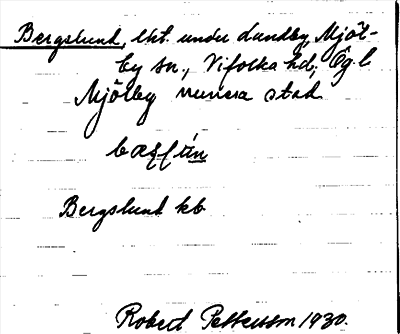 Bergslund, lht. under Lundby, Mjöl-
by sn., Vifolka hd, Ög. l
Mjölby numera stad
Bergslund kb
Robert Pettersson 1930.